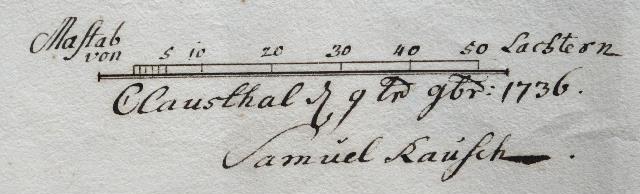 Maſtab
von 5 10 20 30 40 50 Lachtern
Clausthal d 9 tn 9br: 1736.
Samuel Rauſch.